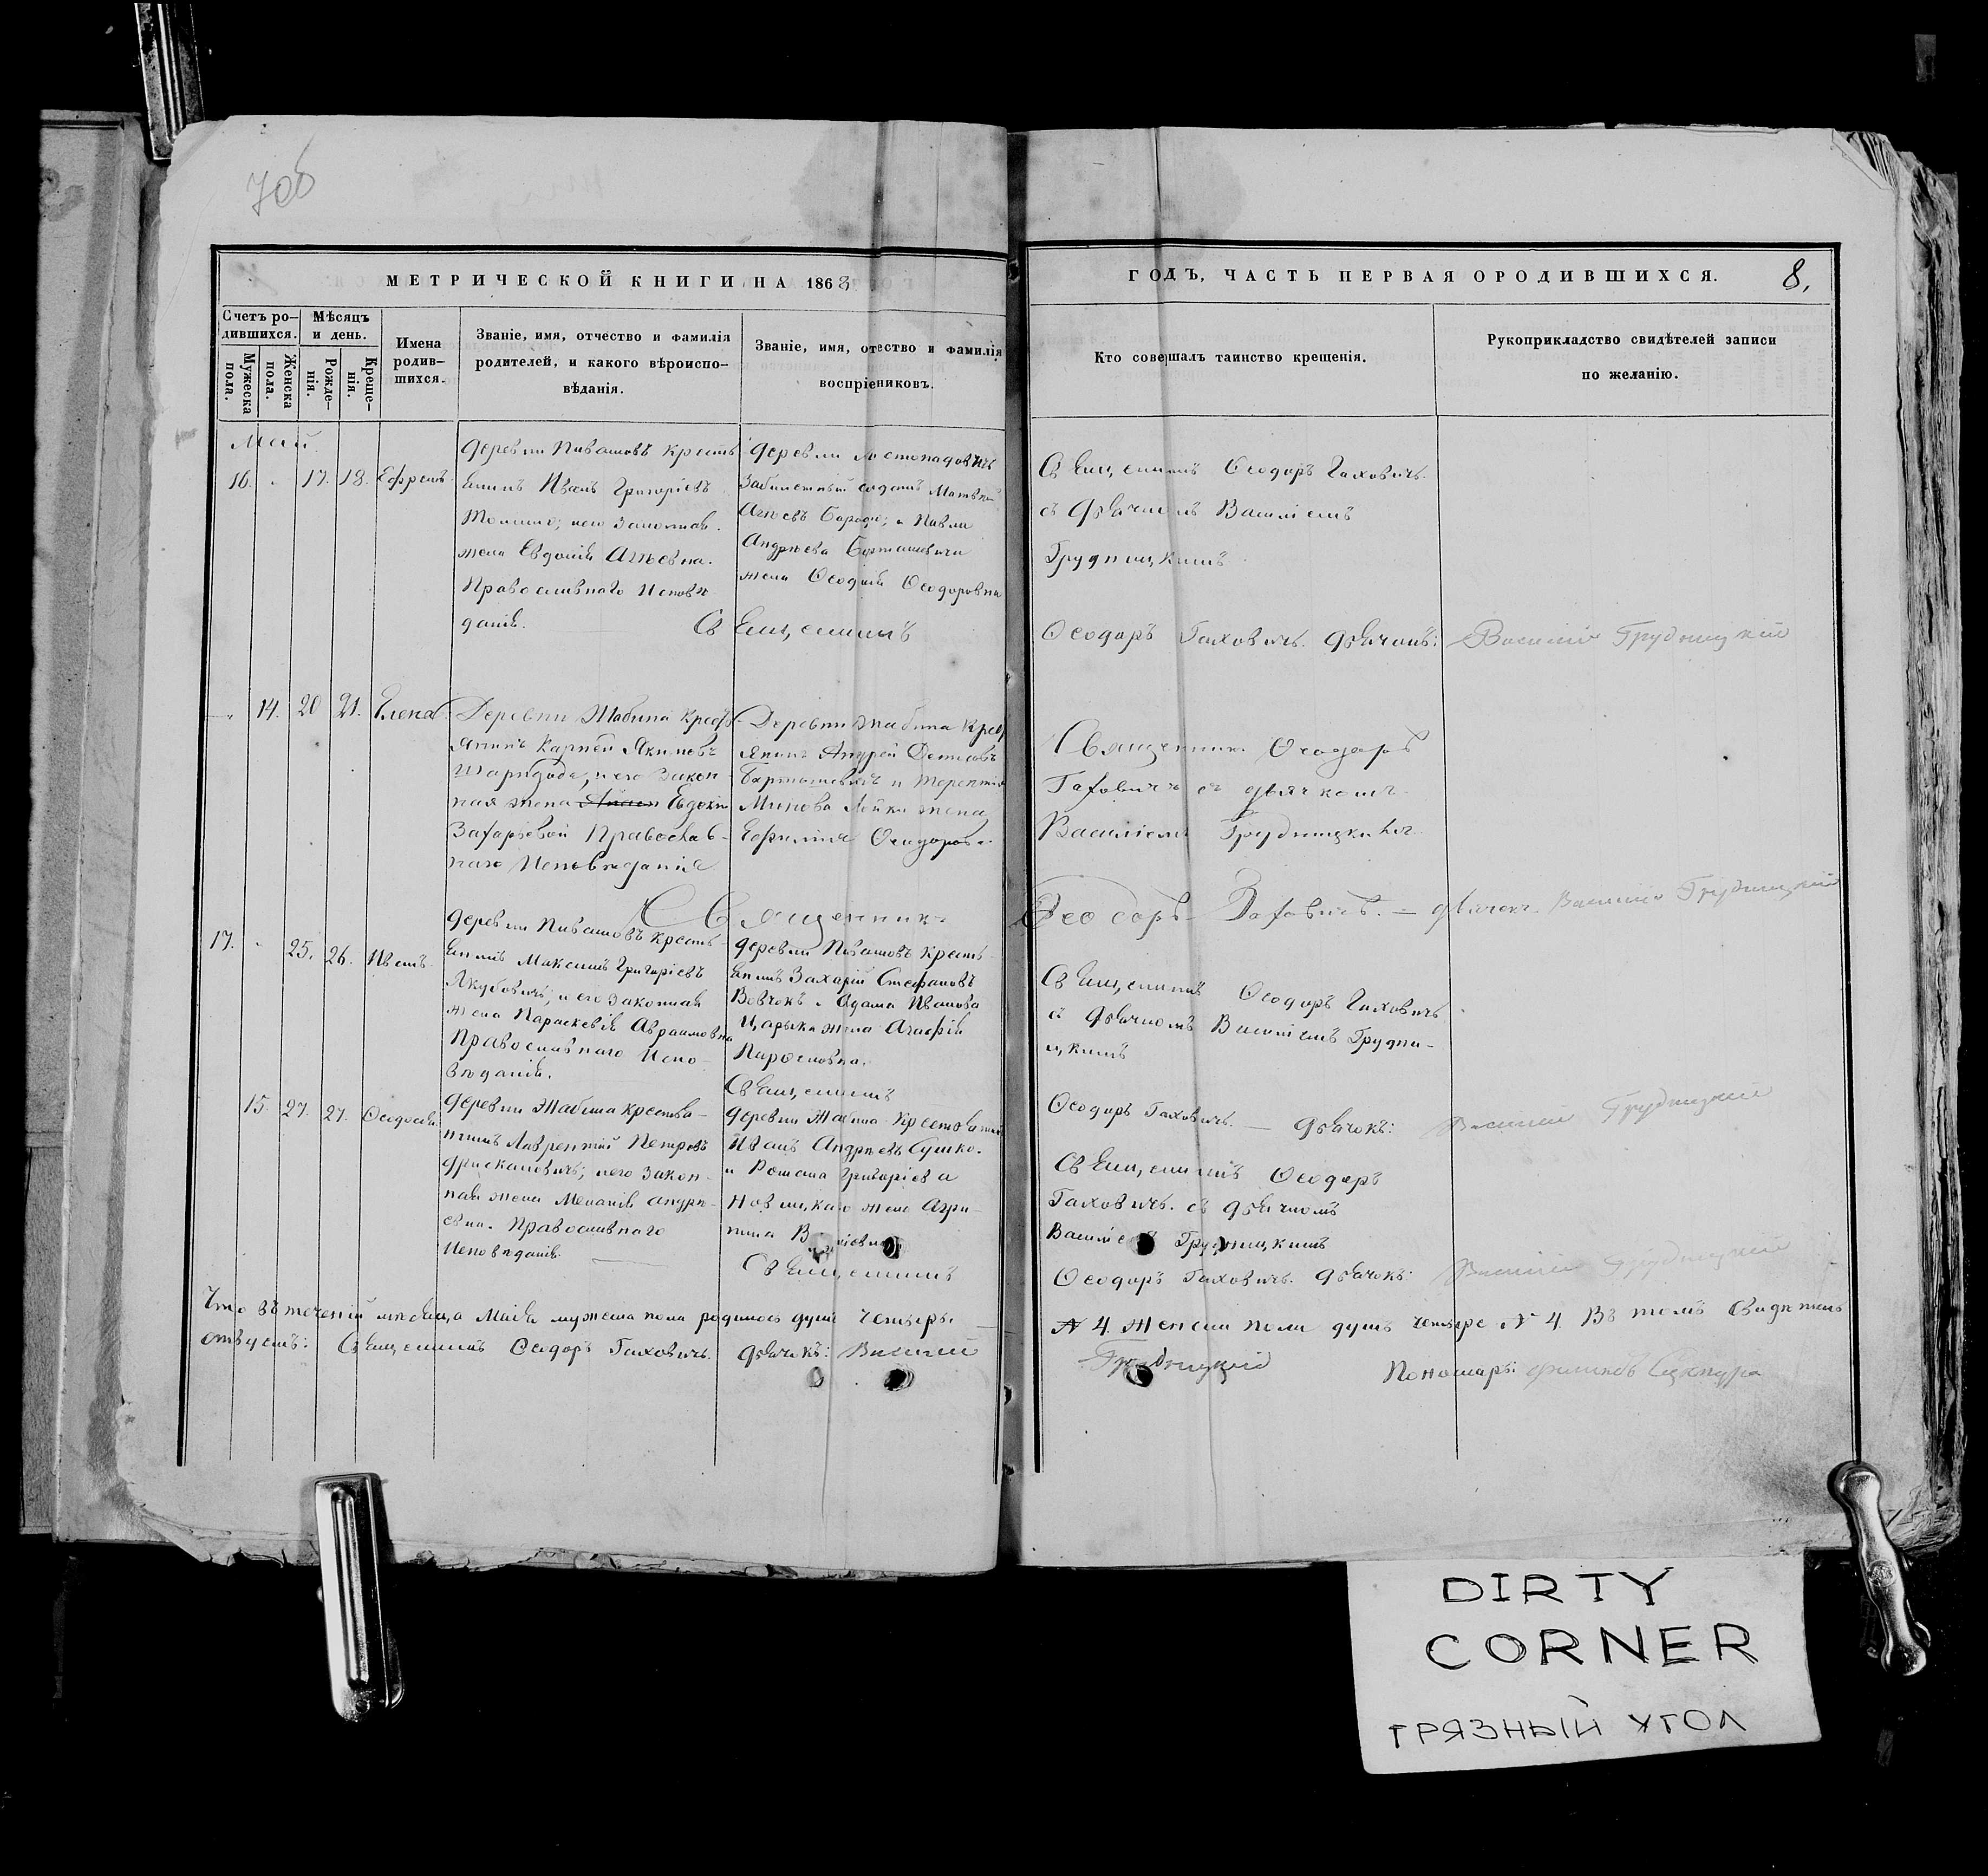 70б
МЕТРИЧЕСКОЙ КНИГИ НА 1868
ГОДЪ, ЧАСТЬ ПЕРВАЯ ОРОДИВШИХСЯ.
8,
Счетъ ро-
дившихся.
Мужеска
пола.
Женска
пола.
Мѣсяцъ
и день.
Рожде-
нія.
Креще-
нія.
Имена
родив-
шихся.
Званіе, имя, отчество и фамилія
родителей, и какого вѣроиспо-
вѣданія.
Званіе, имя, отество и фамилія
воспріениковъ.
Кто совешалъ таинство крещенія.
Рукоприкладство свидѣтелей записи
по желанію.
Май
16. 17. 18. Ефремъ
Деревни Пивашовъ Кресть
янинъ Иванъ Григоріевъ
и его законная
жена Евдокія Агѣевна.
Православнаго Исповѣ
данія.
Деревни
Матвей
Агѣевъ и Павла
Андрѣева
жена Ѳеодоровна
Священникъ Ѳеодоръ Гаховичъ
съ дьячкомъ Василіемъ
Грудницкимъ
Священникъ Ѳеодоръ Гаховичъ. дьячокъ: Василій Грудницкій
14. 20 21. Елена
Деревни Жабина Кресть
янинъ Карпъ Якимовъ
и его Закон
ная жена Евдокія
Захарьевой Православ-
наго Исповѣданія
Деревни Жабина Крест
янинъ Андрей Денисовъ
Бартошевичъ и Терентія
Минова жена
Ефимія Ѳеодорова
Священникъ Ѳеодоръ
Гаховичъ съ дьячкомъ
Василіемъ Грудницкимъ
Священникъ Ѳеодоръ Гаховичъ. — дьячокъ Василій Грудницкій
17. 25. 26. Иванъ
Деревни Пивашовъ Кресть-
янинъ Максимъ Григоріевъ
Якубовичъ, и его Законная
жена Параскевія Авраамовна
Православнаго Испо-
вѣданія.
Деревни Пивашовъ Кресть-
янинъ Захарій Стефановъ
Вовчокъ и Адама Иванова
Царыка жена Агафія
Священникъ Ѳеодоръ Гаховичъ
съ дьячкомъ Василіемъ Грудни-
цкимъ
Священникъ
Ѳеодоръ Гаховичъ. — дьячокъ: Василій Грудницкій
15. 27. 27. Ѳеодосія
Деревни Жабина Крестья-
нинъ Лаврентій Петровъ
и его Закон-
ная жена Меланія Андрѣ-
евна. Православнаго
Исповѣданія.
Деревни Жабина Крестьянинъ
Иванъ Андрѣевъ Сушко.
и Романа Григоріева
Новицкаго жена Агри-
пина
Священникъ
Священникъ Ѳеодоръ
Гаховичъ. съ дьячкомъ
Василіемъ Грудницкимъ
Ѳеодоръ Гаховичъ. дьячокъ: Василій Грудницкій
Что въ теченіи мѣсяца Маія мужеска пола родилось душъ четыре. — № 4. Женска пола душъ четыре № 4. Въ томъ Свидѣтель
ствуемъ: Священникъ Ѳеодоръ Гаховичъ. дьячокъ: Василій Грудницкій Пономарь:
DIRTY
CORNER
ГРЯЗНЫЙ УГОЛ